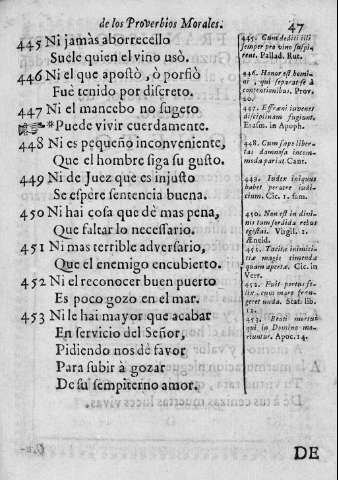 de los Proverbios Morales. 47
445 Ni jamàs aborrecello
Suele quien el vino usò.
446 Ni el que apostò, ò porfiò
Fuè tenido por discreto.
447 Ni el mancebo no sugeto
*Puede vivir cuerdamente.
448 Ni es pequeño inconveniente,
Que el hombre siga su gusto.
449 Ni de Juez que es injusto
Se espere sentencia buena.
450 Ni hai cosa que dè mas pena,
Que faltar lo necessario.
451 Ni mas terrible adversario,
Que el enemigo encubierto.
452 Ni el reconocer buen puerto
Es poco gozo en el mar.
453 Ni le hai mayor que acabar
En servicio del Señor,
Pidiendo nos dè favor
Para subir à gozar
De su sempiterno amor.
445. Cum dediti illi
semper pro vino suspi-
rent. Pallad. Rut.
446. Honor est homi-
ni, qui separat se à
contentionibus. Prov.
20.
447. Effræni juveni
disciplinam fugiunt.
Erasm. in Apoph.
448. Cum sæpe liber-
tas damnosa incom-
moda pariat Cant.
449. Index iniquus
habet perdere judi-
cium. Cic. 1. fam.
450. Non est in divi-
nis tam sordida rebus
egestas. Virgil. 2.
Æneid.
451. Tacitæ inimici-
tiæ magis timenda
quam apertæ. Cic. in
Verr.
452. Fuit portus fe-
lix,
Stat. lib.
12.
453. Beati mortui
qui in Domino mo-
riuntur. Apoc. 14.
DE